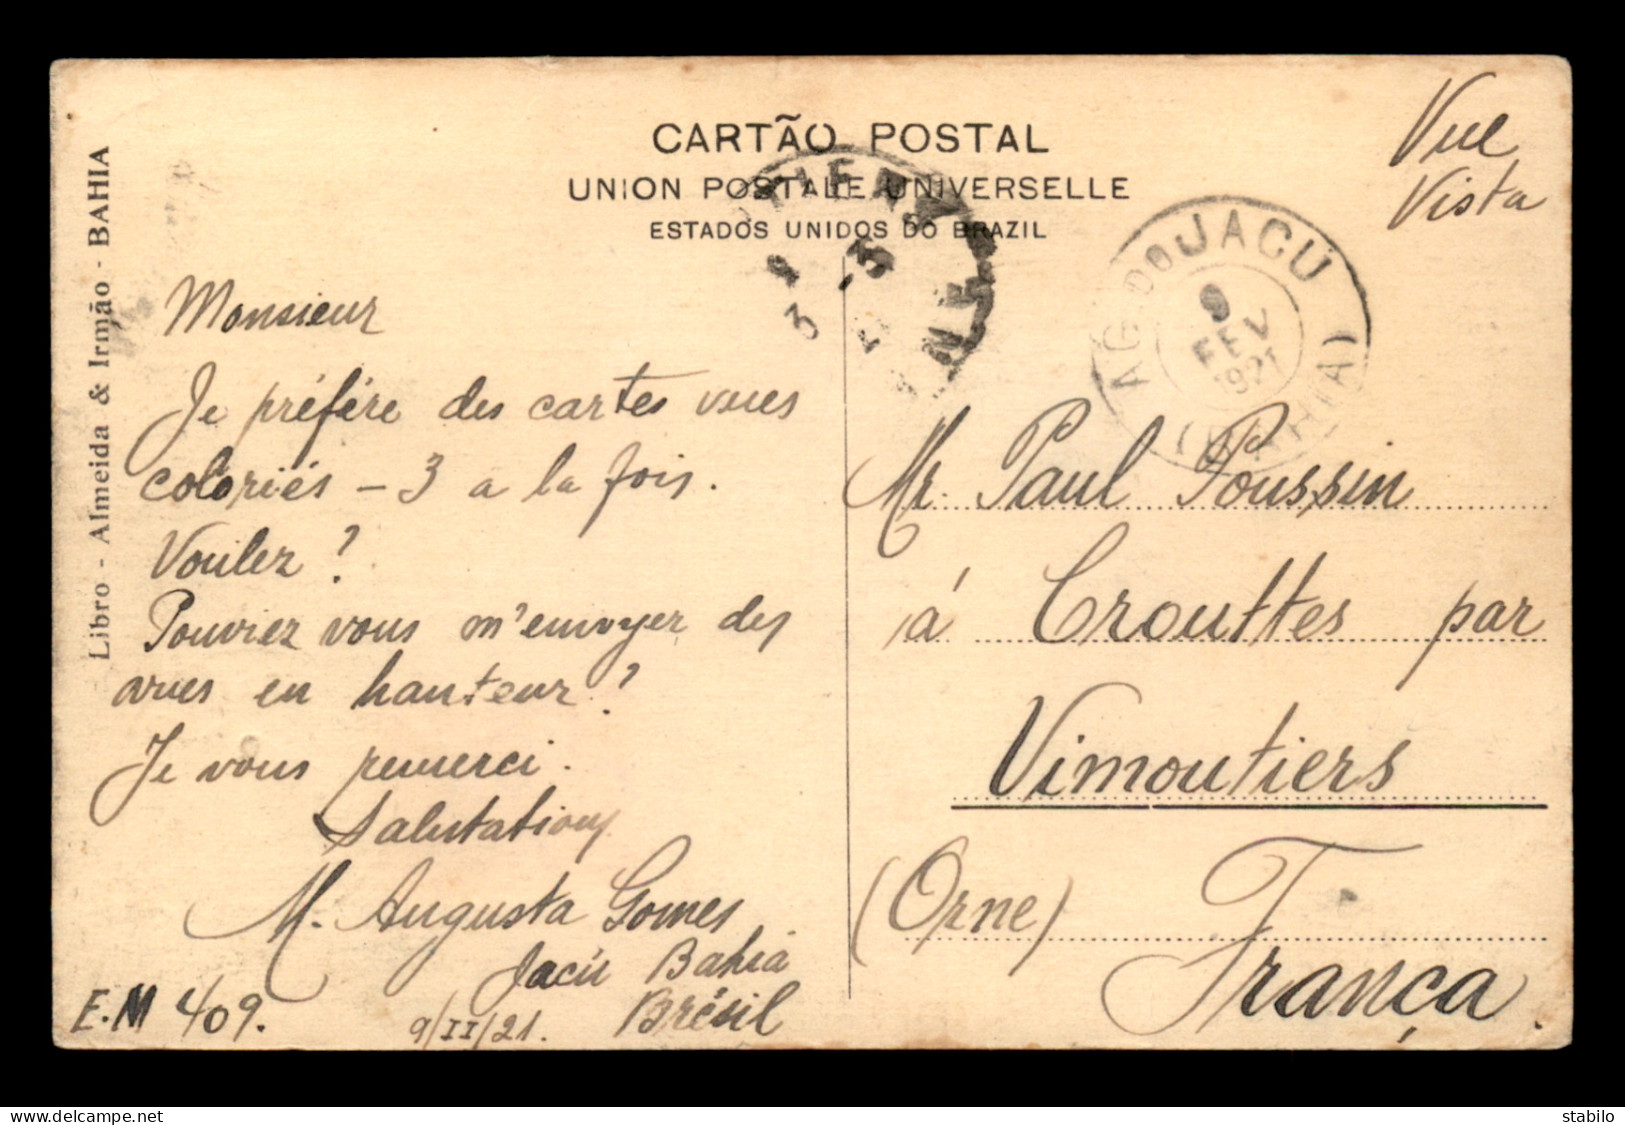 CARTÃO POSTAL
UNION POSTALE UNIVERSELLE
ESTADOS UNIDOS DO BRAZIL
Vue
Vista
Libro - Almeida & Irmão - BAHIA
AG. DO JACU
9
FEV
1921
(BAHIA)
9
3 - 3
Monsieur
Je préfére des cartes vues
coloriés - 3 a la fois.
Voulez?
Pouviez vous m'envoyer des
vues en hauteur?
Je vous remerci.
Salutations
M. Augusta Gomes
Jacú Bahia
Brésil
9/II/21.
E.M 409.
Mr. Paul Poussin
á Crouttes par
Vimoutiers
(Orne)
França.
delcampe.net
stabilo